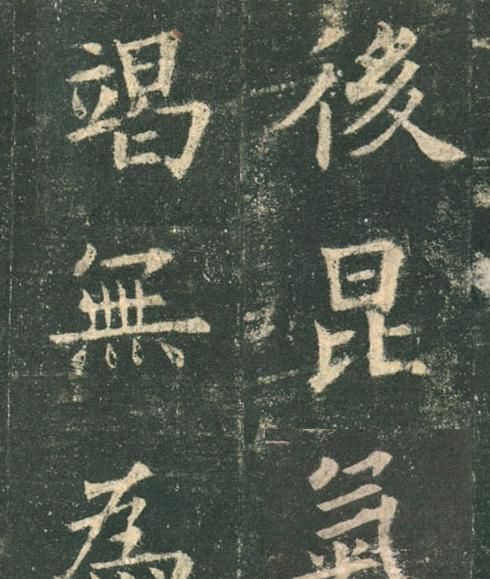 後昆氣
竭無為